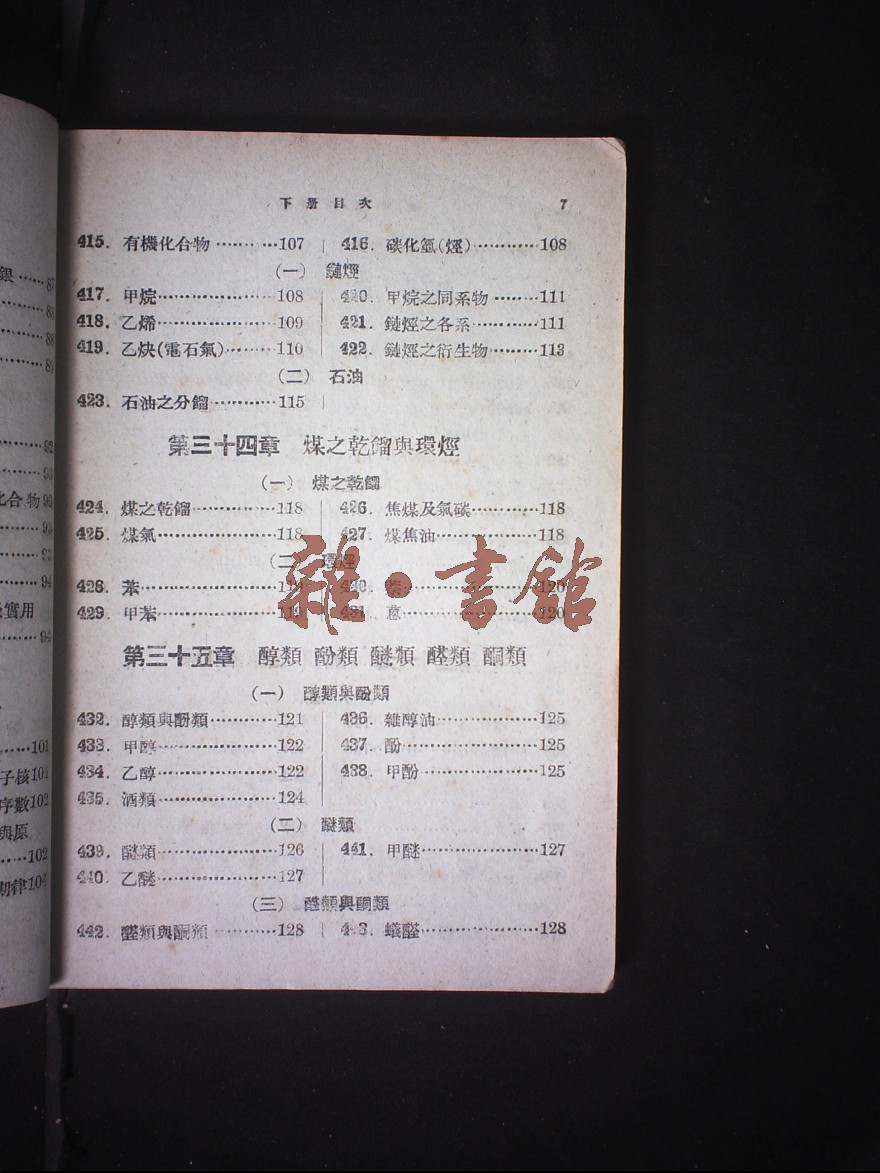 下冊目次 7
415. 有機化合物············107 | 416. 碳化氫(烴)············108
(一) 鏈烴
417. 甲烷············108 | 420. 甲烷之同系物········111
418. 乙烯············109 | 421. 鏈烴之各系············111
419. 乙炔(電石氣)·········110 | 422. 鏈烴之衍生物·········113
(二) 石油
423. 石油之分餾············115 |
第三十四章 煤之乾餾與環烴
(一) 煤之乾餾
424. 煤之乾餾············118 | 426. 焦煤及氣碳············118
425. 煤氣············118 | 427. 煤焦油············118
(二) 環烴
428. 苯············119
429. 甲苯············119 | 431. 蒽············120
雜·書館
第三十五章 醇類 酚類 醚類 醛類 酮類
(一) 醇類與酚類
432. 醇類與酚類············121 | 436. 雜醇油············125
433. 甲醇············122 | 437. 酚············125
434. 乙醇············122 | 438. 甲酚············125
435. 酒類············124
(二) 醚類
439. 醚類············126 | 441. 甲醚············127
440. 乙醚············127
(三) 醛類與酮類
442. 醛類與酮類············128 | 443. 蟻醛············128
銀······87
88
88
89
92
93
化合物93
93
93
94
實用
94
101
子核101
序數102
與原
102
期律104